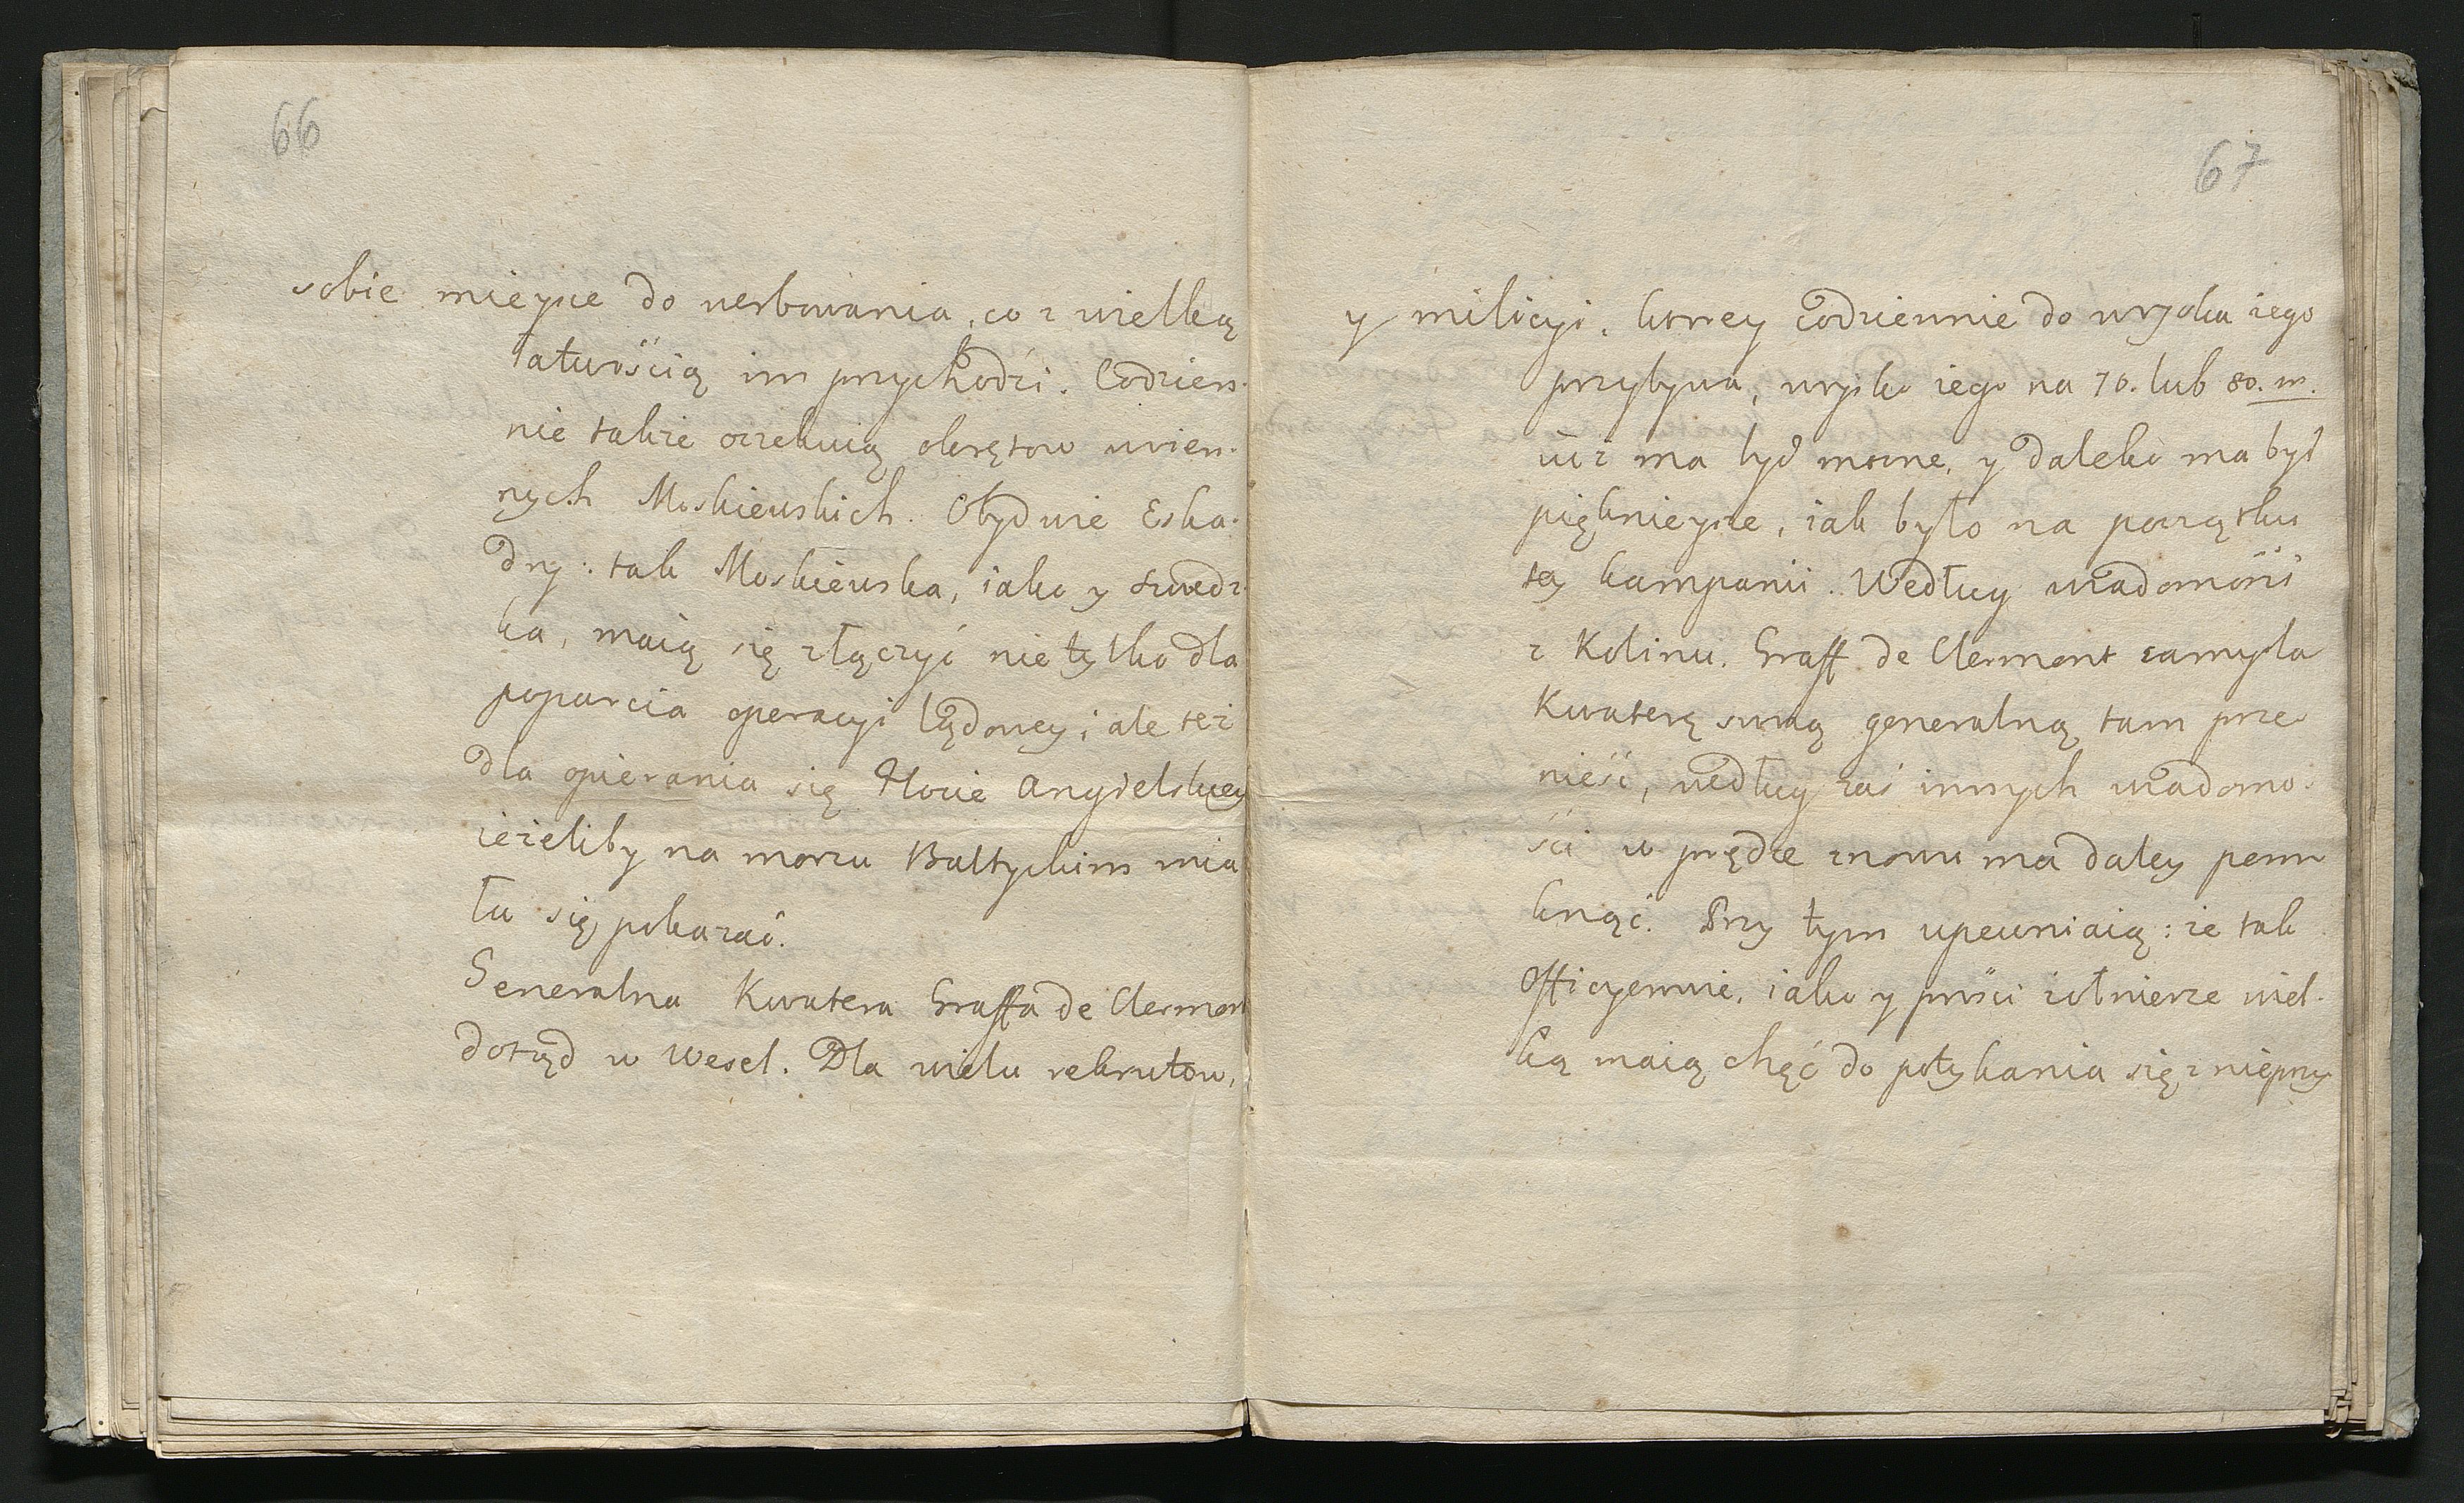 66
sobie mieysce do werbowania, co z wielką
łatwością im przychodzi. Codzien-
nie także oczekuią okrętow woien-
nych Moskiewskich. Obydwie Eska-
dry: tak Moskiewska, iako y szwedz-
ka, maią się złączyć nie tylko dla
poparcia operacyi lądowey; ale też
dla opierania się Flocie Angielskiey
ieżeliby na morzu Baltyckim mia
ła się pokazać.
Generalna Kwatera Graffa de Clermon
dotąd w Wesel. Dla wielu rekrutow,
67
y milicyi, ktorey codziennie do woyska iego
przybywa, woysko iego na 70. lub 80. m.
iuż ma być mocne, y daleko ma być
pięknieysze, iak było na początku
tey kampanii. Według wiadomości
z Kolinu. Graff de Clermont zamysla
Kwaterę swoią generalną tam prze
nieść, według zaś innych wiadomo-
ści w prędce znowu ma daley pom
knąć. Przy tym upewniaią: że tak
Officyerowie, iako y prości żołnierze wiel-
ką maią chęć do potykania się z nieprzy